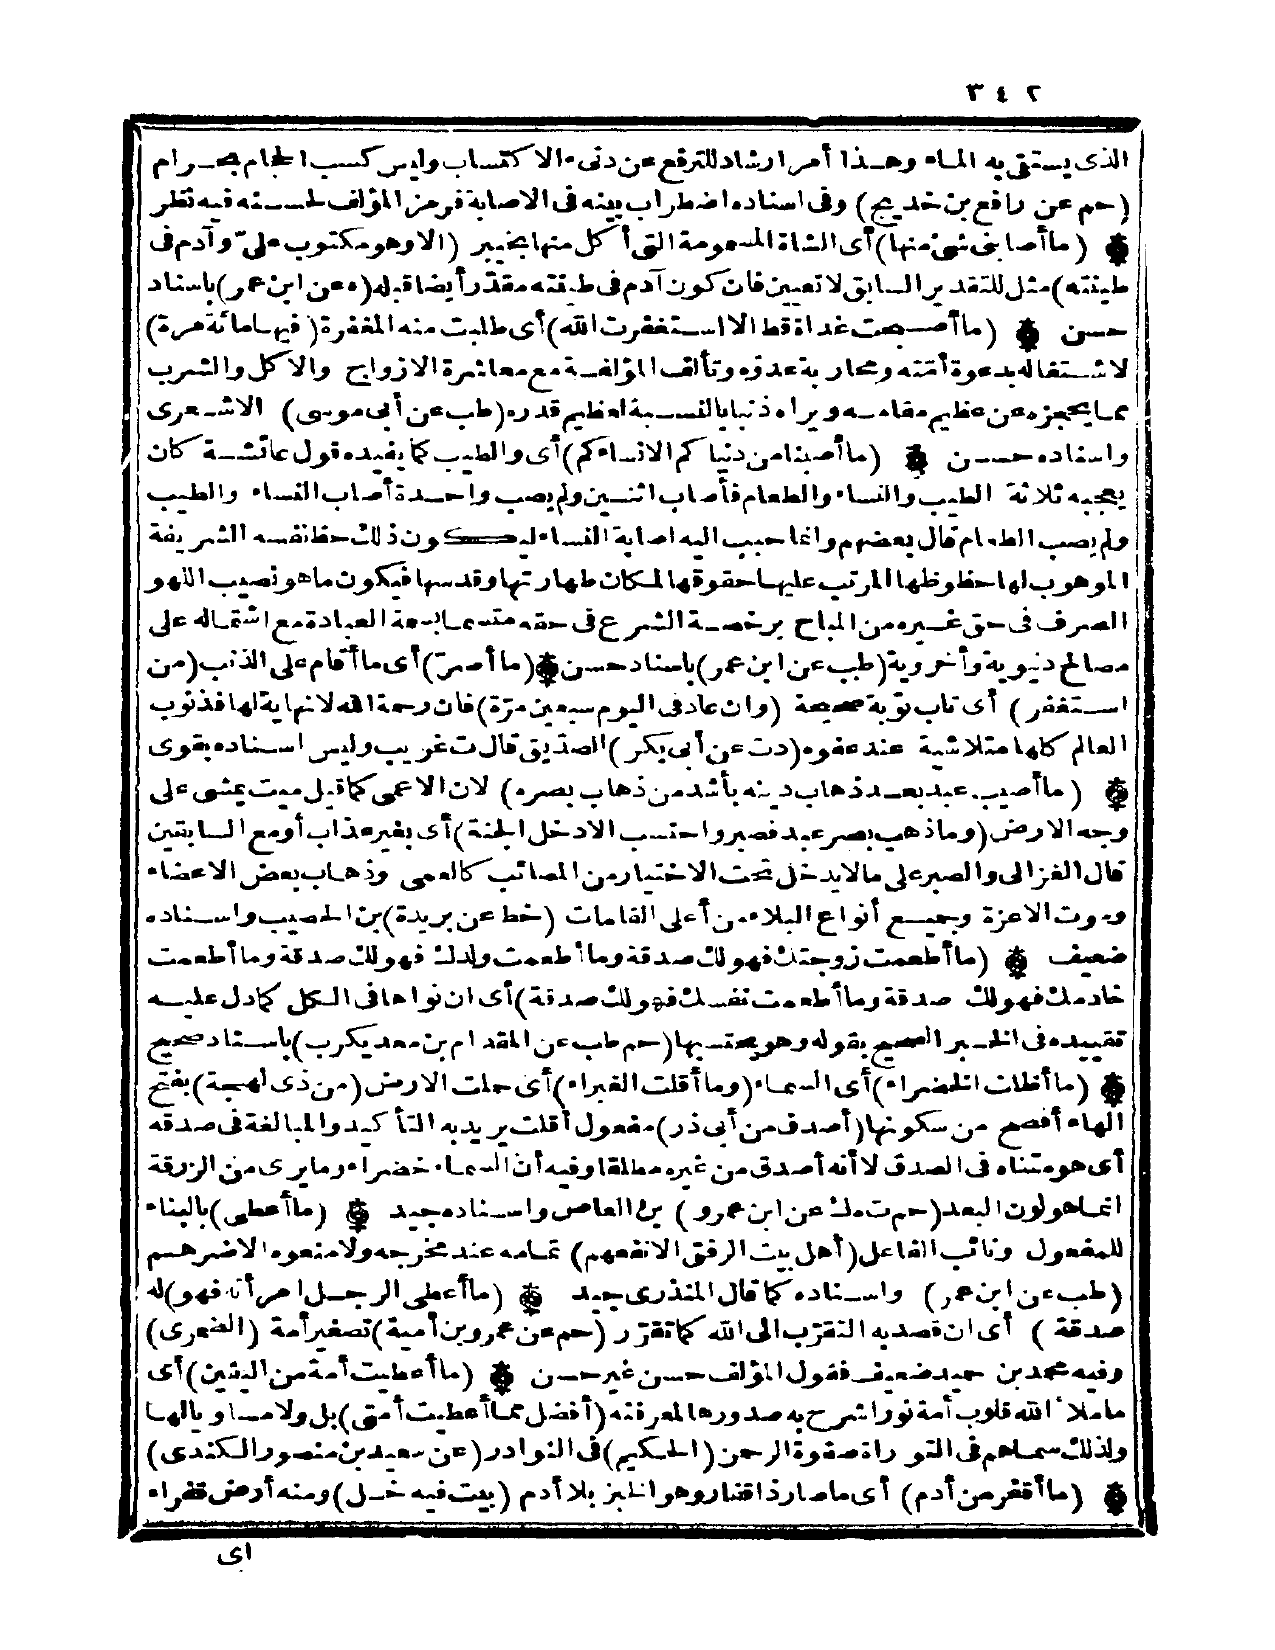 ٣٤٢
الذى يستقى به الماء وهذا أمر ارشاد للترفع عن دنىء الاكتساب وليس كسب الحجام بحرام
(حم عن رافع بن خديج) وفى اسناده اضطراب بينه فى الاصابة فرمز المؤلف لحسنه فيه نظر
(ما أصابنى شئ منها) أى الشاة المسمومة التى أكل منها بخيبر (الا وهو مكتوب علىّ وآدم فى
طينته) مثل للتقدير السابق لا تعيين فان كون آدم فى طينته مقدّر أيضا قبله (ه عن ابن عمر) باسناد
حسن (ما أصبحت غداة قط الا استغفرت الله) أى طلبت منه المغفرة (فيها مائة مرة)
لاشتغاله بدعوة أمّته ومحاربة عدوّه وتألف المؤلفة مع معاشرة الازواج والاكل والشرب
مما يحجزه عن عظيم مقامه ويراه ذنبا بالنسبة لعظيم قدره (طب عن أبى موسى) الاشعرى
واسناده حسن (ما أصبنا من دنياكم الا نساءكم) أى والطيب كما يفيده قول عائشة كان
يعجبه ثلاثة الطيب والنساء والطعام فأصاب اثنين ولم يصب واحدة أصاب النساء والطيب
ولم يصب الطعام قال بعضهم وانما حبب اليه اصابة النساء ليكون ذلك حظ نفسه الشريفة
الموهوب لها حظوظها المرتب عليها حقوقها لمكان طهارتها وقدسها فيكون ما هو نصيب اللهو
الصرف فى حق غيره من المباح برخصة الشرع فى حقه متسما بسمة العبادة مع اشتماله على
مصالح دنيوية وأخروية (طب عن ابن عمر) باسناد حسن (ما أصرّ) أى ما أقام على الذنب (من
استغفر) أى تاب توبة صحيحة (وان عاد فى اليوم سبعين مرّة) فان رحمة الله لا نهاية لها فذنوب
العالم كلها متلاشية عند عفوه (دت عن أبى بكر) الصديق قال ت غريب وليس اسناده بقوى
(ما أصيب عبد بعد ذهاب دينه بأشد من ذهاب بصره) لان الاعمى كما قيل ميت يمشى على
وجه الارض (وما ذهب بصر عبد فصبر واحتسب الا دخل الجنة) أى بغير عذاب أو مع السابقين
قال الغزالى والصبر على ما لا يدخل تحت الاختيار من المصائب كالعمى وذهاب بعض الاعضاء
وموت الاعزة وجميع أنواع البلاء من أعلى المقامات (خط عن بريدة) بن الحصيب واسناده
ضعيف (ما أطعمت زوجتك فهو لك صدقة وما أطعمت ولدك فهو لك صدقة وما أطعمت
خادمك فهو لك صدقة وما أطعمت نفسك فهو لك صدقة) أى ان نواها فى الكل كما دل عليه
تقييده فى الخبر الصحيح بقوله وهو يحتسبها (حم طب عن المقدام بن معد يكرب) باسناد صحيح
(ما أظلت الخضراء) أى السماء (وما أقلت الغبراء) أى حملت الارض (من ذى لهجة) بفتح
الهاء أفصح من سكونها (أصدق من أبى ذر) مفعول أقلت يريد به التأكيد والمبالغة فى صدقه
أى هو متناه فى الصدق لا أنه أصدق من غيره مطلقا وفيه أن السماء خضراء وما يرى من الزرقة
انما هو لون البعد (حم ت ه ك عن ابن عمرو) بن العاص واسناده جيد (ما أعطى) بالبناء
للمفعول ونائب الفاعل (أهل بيت الرفق الا نفعهم) تمامه عند مخرجه ولا منعوه الا ضرهم
(طب عن ابن عمر) واسناده كما قال المنذرى جيد (ما أعطى الرجل امرأته فهو) له
صدقة ) أى ان قصد به التقرّب الى الله كما تقرّر (حم عن عمرو بن أمية) تصغير أمة (الضمرى)
وفيه محمد بن حميد ضعيف فقول المؤلف حسن غير حسن (ما أعطيت أمة من اليقين) أى
ما ملأ الله قلوب أمة نورا شرح به صدورها لمعرفته (أفضل مما أعطيت أمتى) بل ولا مساويا لها
ولذلك سماهم فى التوراة صفوة الرحمن (الحكيم) فى النوادر (عن سعيد بن منصور الكندى)
(ما أقفر من أدم) أى ما صار ذا قفار وهو الخبز بلا أدم (بيت فيه خل) ومنه أرض قفراء
اى